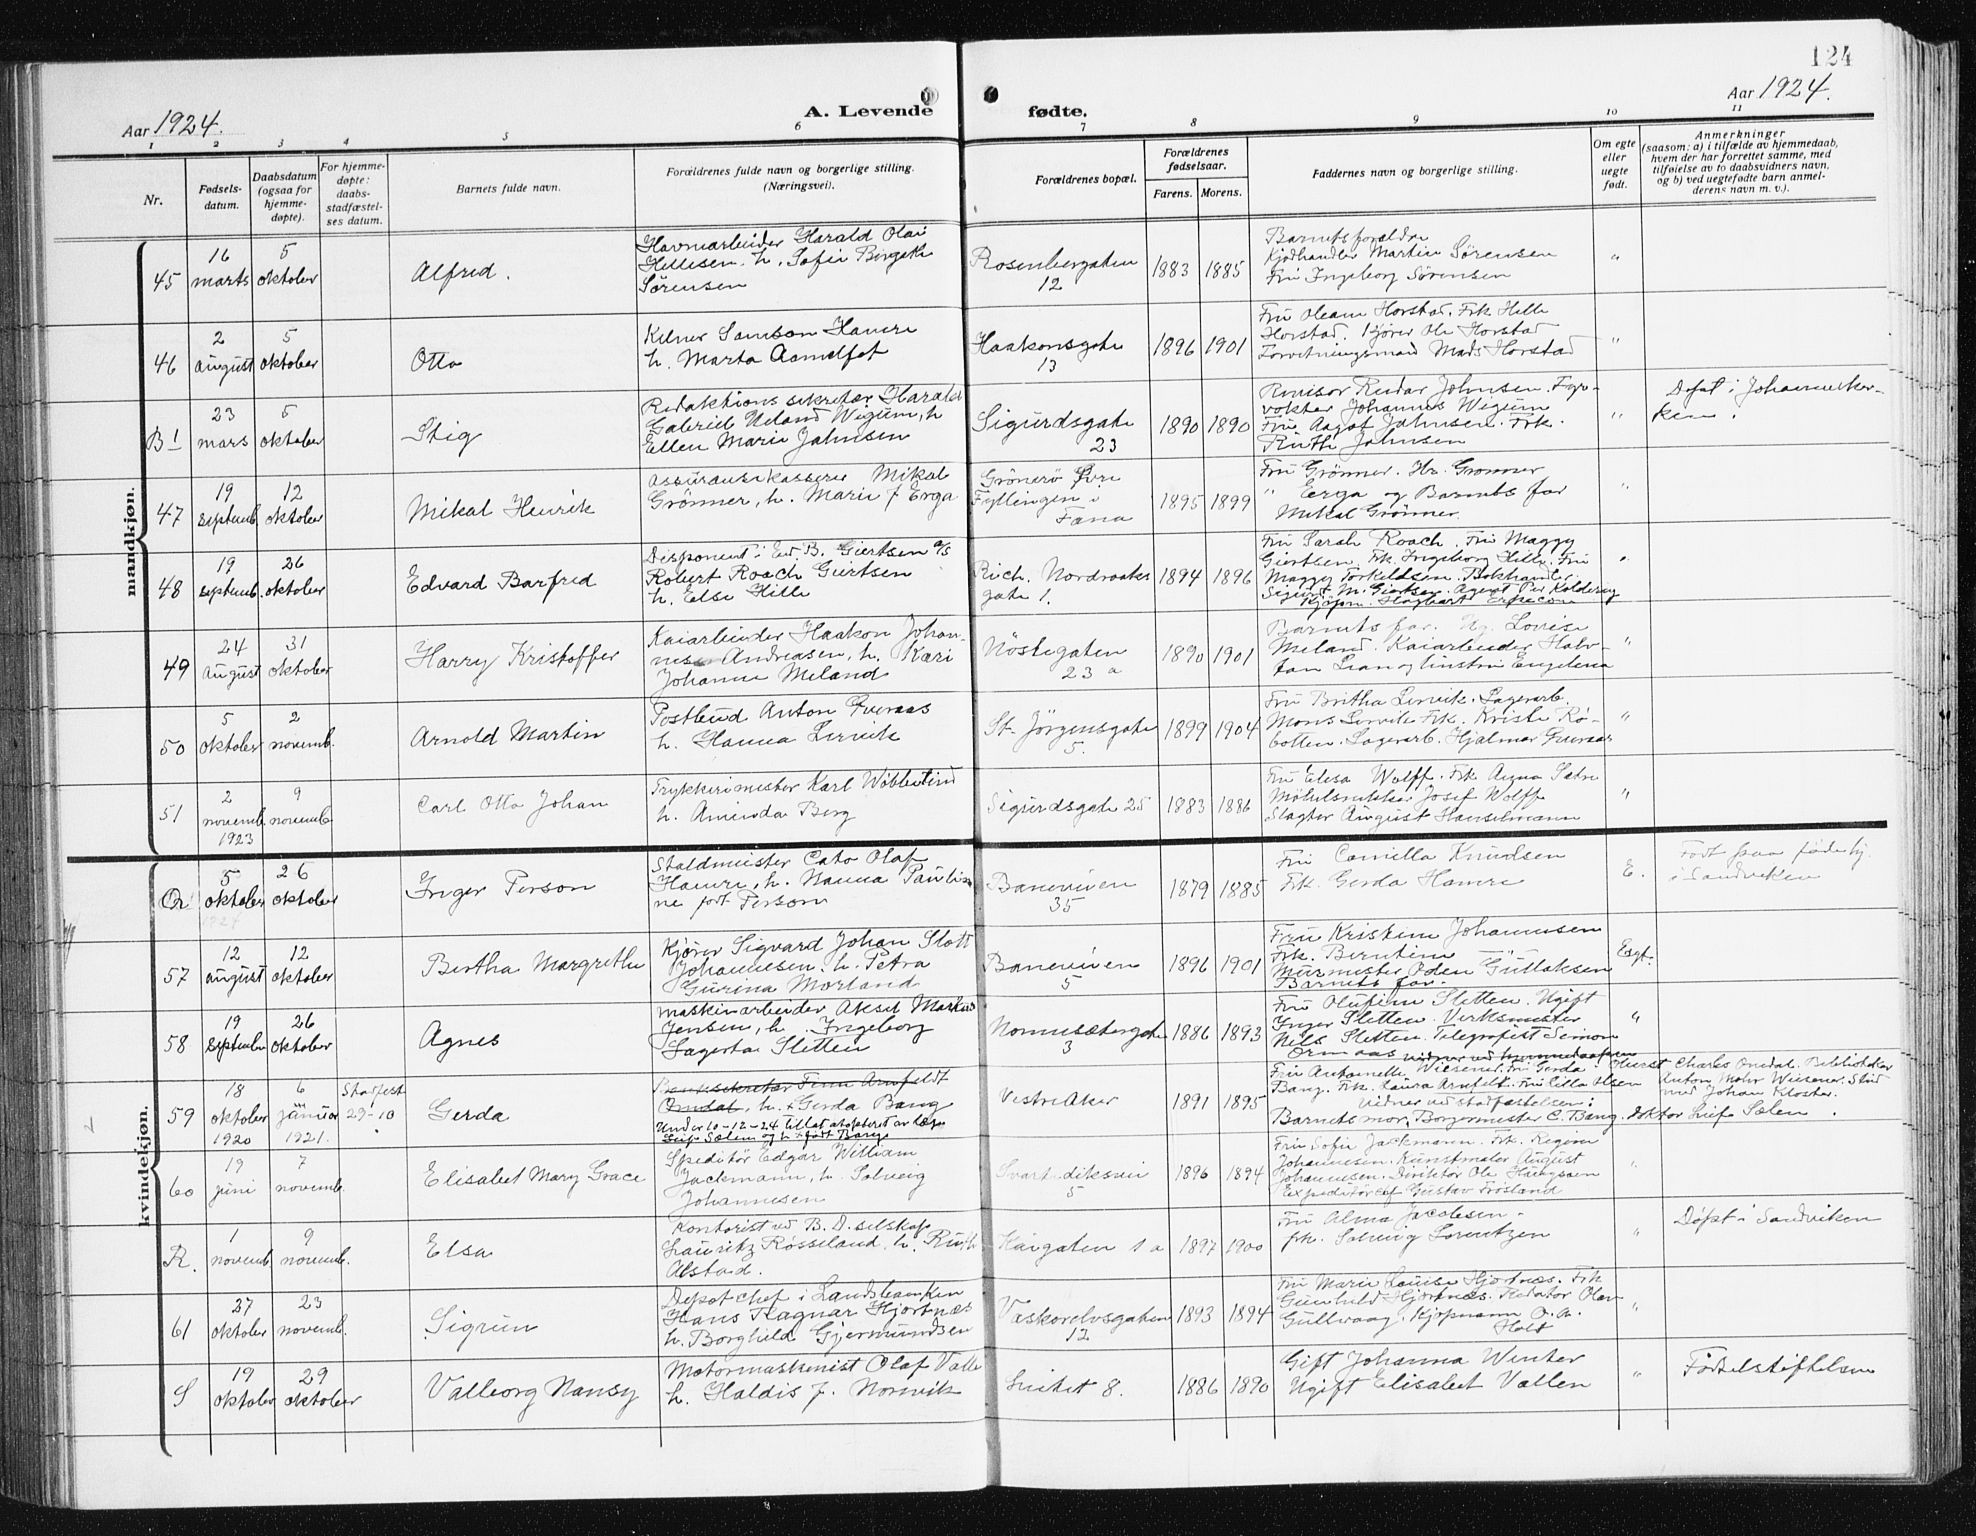 124
Aar 1924.
A. Levende fødte.
Aar 1924.
1 2 3 4 5 6 7 8 9 10 11
Nr.
Fødsels-
datum.
Daabsdatum
(ogsaa for
hjemme-
døpte).
For hjemme-
døpte:
daabs-
stadfæstel-
ses datum.
Barnets fulde navn.
Forældrenes fulde navn og borgerlige stilling.
(Næringsvei).
Forældrenes bopæl.
Forældrenes
fødselsaar.
Farens. Morens.
Faddernes navn og borgerlige stilling.
Om egte
eller
uegte
født.
Anmerkninger
(saasom: a) i tilfælde av hjemmedaab,
hvem der har forrettet samme, med
tilføielse av to daabsvidners navn,
og b) ved uegtefødte barn anmel-
derens navn m. v.).
mandkjøn.
45
16
marts
5
oktober
Alfred.
Havnearbeider Harald Olai
Hellesen. h. Sofie Birgete
Sørensen
Rosenbergaten
12
1883 1885
Barnets forældre
Kjødhandler Martin Sørensen
Fru Ingeborg Sørensen
"
46
2
august
5
oktober
Otto
Kelner Samson Hamre
h. Marta Aamelfot
Haakonsgate
13
1896 1901
Fru Oleane Horstad. Frk Helle
Horstad. Kjører Ole Horstad
Forretningsmand Mads Horstad
"
B 1
23
mars
5
oktober
Stig
Redaktionssekretær Harald
Gabriel Ueland Wigum, h
Ellen Marie Johnsen
Sigurdsgate
23
1890 1890
Revisor Reidar Johnsen. Fyr-
vokter Johannes Wigum
Fru Aagot Johnsen. Frk.
Ruth Johnsen
"
Døpt i Johanneskir-
ken.
47
19
septemb.
12
oktober
Mikal Henrik
Assuransekasserer Mikal
Grönner, h. Marie f Erga
Grönerö Øvre
Fyllingen i
Fana
1895 1899
Fru Grønner. Hr. Grønner
" Erga og Barnets far
Mikal Grønner.
"
48
19
septemb.
26
oktober
Edvard Barfred
Disponent i Ed. B. Giertsen a/s
Robert Roach Giertsen
h. Else Hille
Rich. Nordraaks
gate 1.
1894 1896
Fru Sarah Roach. Fru Maggy
Giertsen. Frk. Ingeborg Hille. Fru
Maggy Torkildsen. Bokhandler
Sigurd M. Giertsen. Agent Per Koldervg
Kjøpm. Hagbart
"
49
24
August
31
oktober
Harry Kristoffer
Kaiarbeider Haakon Johan-
nes Andreasen, h. Kari
Johanne Meland
Nöstegaten
23 a
1890 1901
Barnets far. Ug. Lovise
Meland. Kaiarbeider Halv-
dan Lian og hustru Engelena
"
50
5
oktober
2
novemb.
Arnold Martin
Postbud Anton Gveraas
h. Hanna Lervik
St. Jørgensgate
5.
1899 1904
Fru Britha Lervik. Lagerarb.
Mons Lervik Frk. Kristi Rø-
botten. Lagerarb. Hjalmar
"
51
2
novemb.
1923
9
novemb.
Carl Otto Johan
Trykkerimester Karl
h. Aminda Berg
Sigurdsgate 25
1883 1886
Fru Elesa Wolff. Frk Agna Sætre
Møbelsnekker Josef Wolff
Slagter August Hanselmann
"
kvindekjøn.
5
oktober
1924
26
oktober
Inger Person
Staldmester Cato Olaf
Hamre, h. Nanna Pauli-
ne født Person
Baneveien
35
1879 1885
Fru Camilla Knudsen
Frk. Gerda Hamre
E.
Født paa fødehj.
i Sandviken
57
12
august
12
oktober
Bertha Margrethe
Kjører Sigvard Johan Slott
Johannesen. h. Petra
Gurina Morland
Baneveien
5
1896 1901
Fru Kristine Johannesen
Frk. Berntine
Murmester Oden Gullaksen
Barnets far.
Egt.
58
19
September
26
oktober
Agnes
Maskinarbeider Aksel Markus
Jensen, h. Ingeborg
Lagerta Sletten
Nonnesætergate
3
1886 1893
Fru Olufine Sletten. Ugift
Inger Sletten. Verksmester
Nils Sletten. Telegrafist Simon
Ormaas
"
59
18
oktober
1920
6
januar
1921.
Stadfest
29-10
Gerda
Banksekretær Finn Arnfeldt
Omdal, h. Gerda Bang
Under 10-12-24 tillat adopteret av læge
Leif Sælem og h. født Bang
Vestre Aker
1891 1895
vidner ved hjemmedaapen
Fru Antoinette Wiesener. Fru Gerda
Bang. Frk. Laura Arnfelt. Fru Cilla Olsen
Vidner ved stadfæstelsen:
Barnets mor. Borgermester C. Bang. doktor Leif Sælen.
Charles Omdal. Bibliotekar
Anton Mohr Wiesener. Stud
med Johan Kloster.
60
19
juni
7
novemb.
Elisabet Mary Grace
Speditör Edgar William
Jackmann, h. Solveig
Johannesen
Svartediksvei
5
1896 1894
Fru Sofie Jackmann. Frk. Regine
Johannesen. Kunstmaler August
Johannesen. Direktör Ole
Expeditörchef Gustav Frösland
"
R.
1
novemb
9
novemb.
Elsa
Kontorist ved B. D. selskap
Lauritz Røsseland. h. Ruth
Alstad.
Kaigaten 1 a
1897 1900
Fru Alma Jacobsen.
frk. Solveig Lorentzen
"
Døpt i Sandviken
61
27
oktober
23
novemb.
Sigrun
Depotchef i Landsbanken
Hans Ragnar Hjortnæs
h. Borghild Gjermundsen
Vaskerelvsgaten
12
1893 1894
Fru Marie Louise Hjortnæs. Frk
Gunhild Hjortnæs. Redaktør Olav
Gullvaag. Kjøpmann O. A.
Holt
"
S
19
oktober
29
oktober
Valborg Nansy
Motormaskinist Olaf Valle
h. Haldis f. Norevik
8.
1886 1890
Gift Johanna Winter
Ugift Elisabet Vallen
"
Fødselstiftelsen